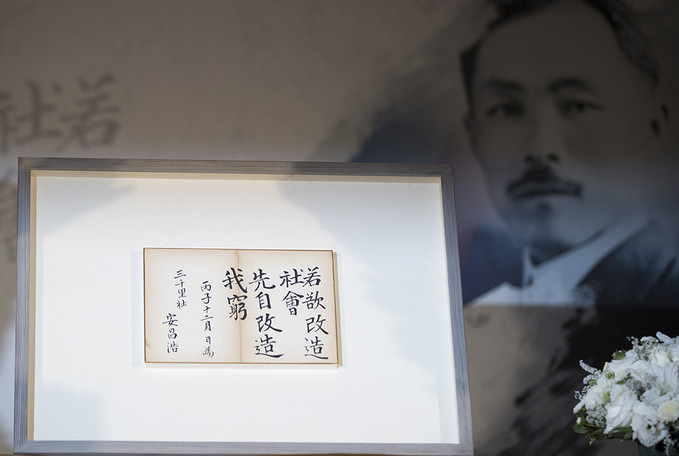 若欲改造
社會
先自改造
我窮
丙子十二月 日為
三千里社
安昌浩
若
社